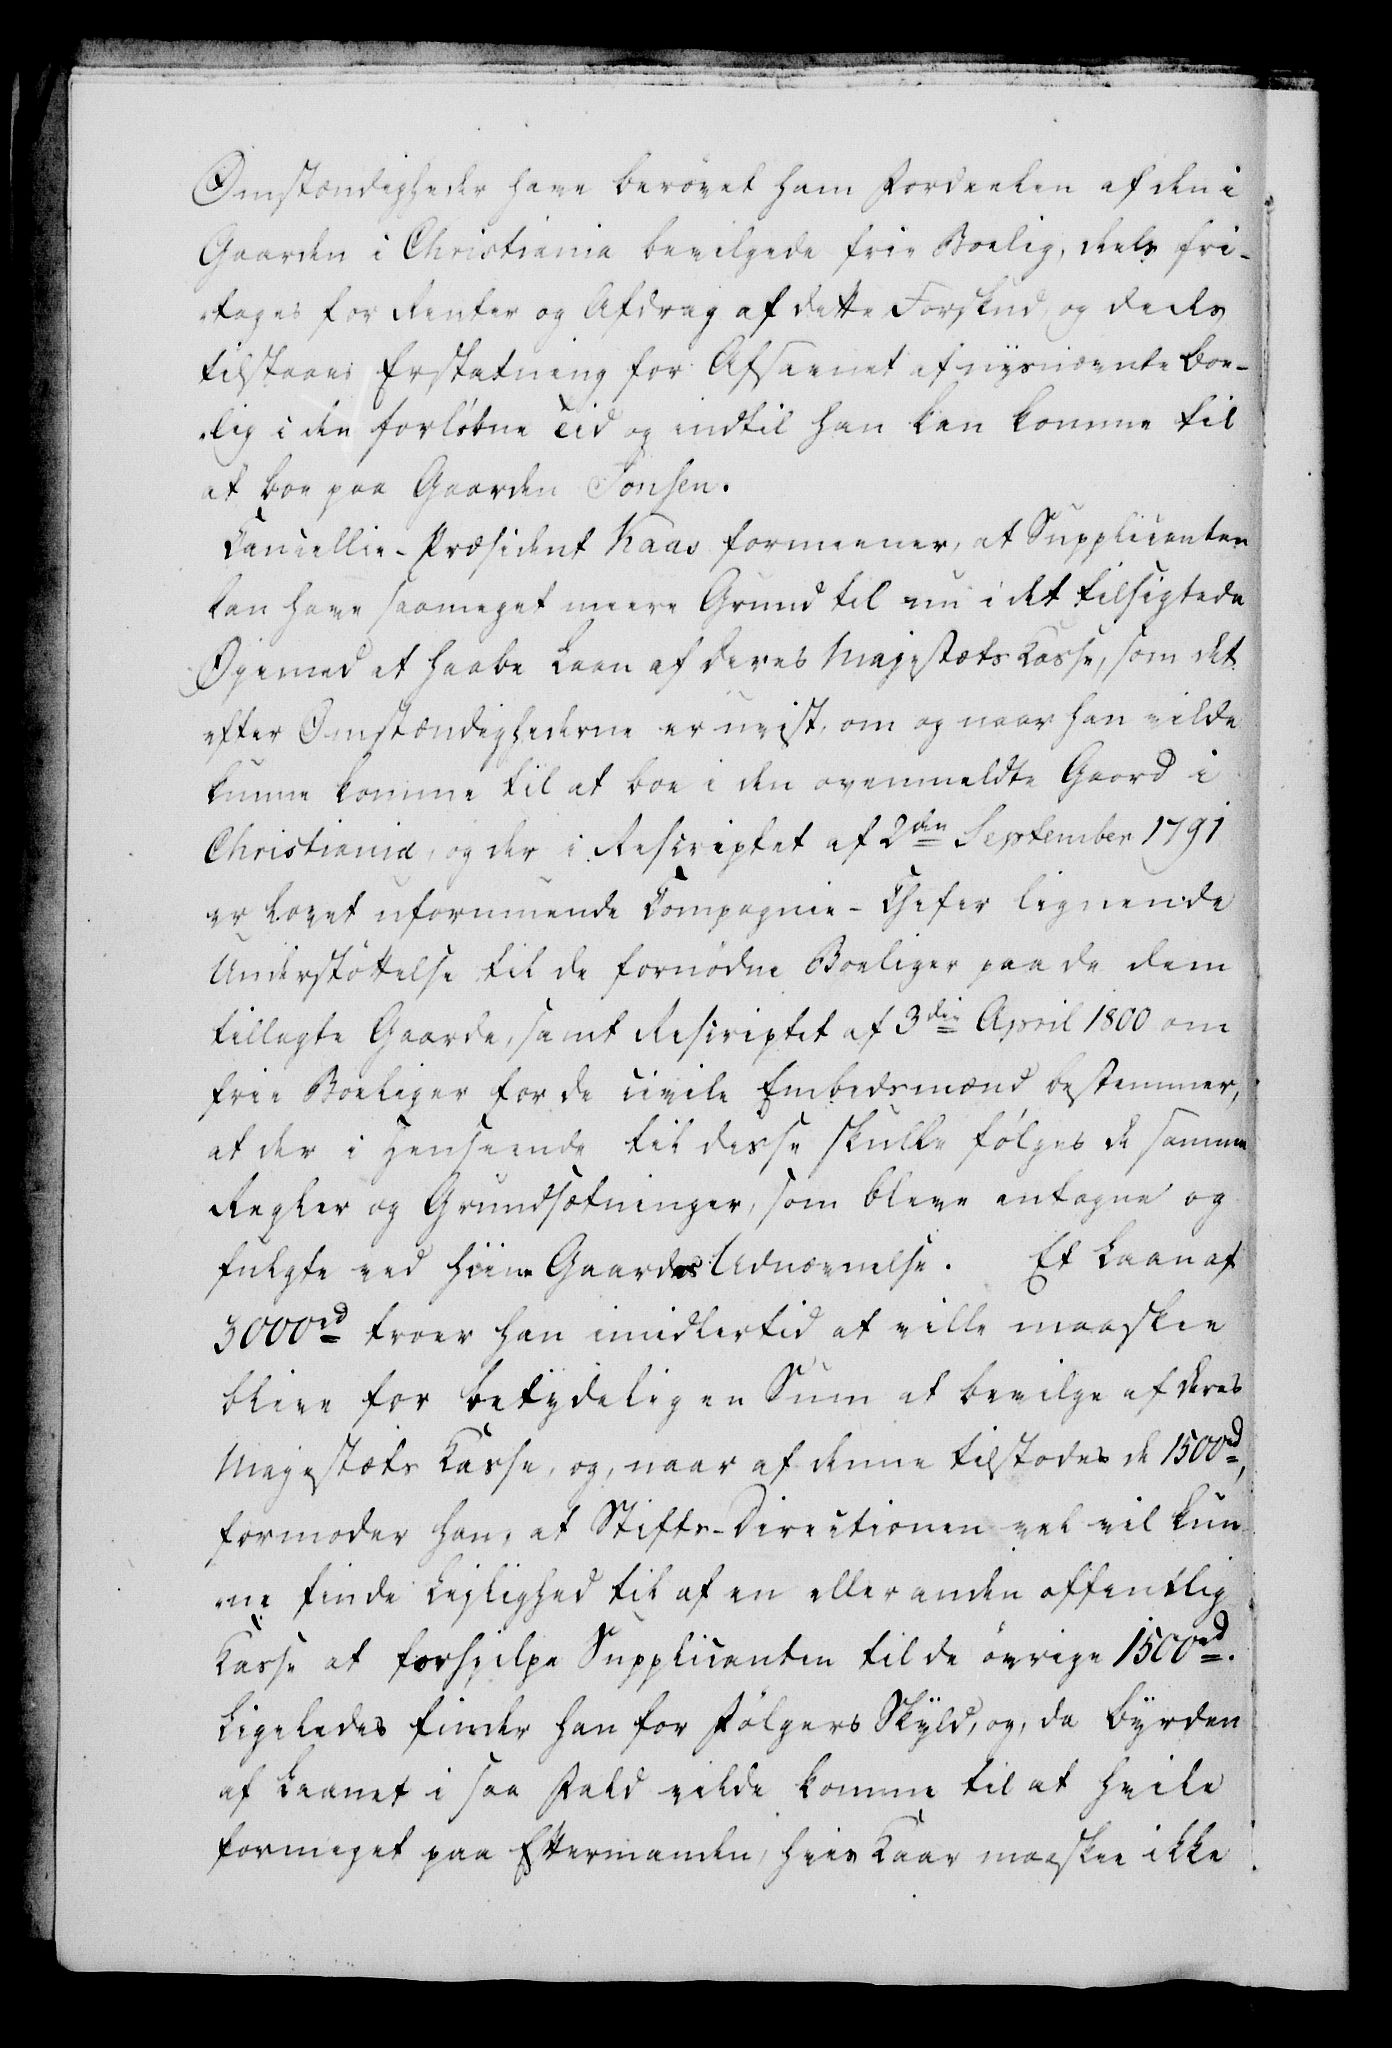 Omstændigheder have berøvet ham Fordeelen af den i
Gaarden i Christiania bevilgede frie Boelig, deels fri-
tages for Renter og Afdrag af dette Forskud, og deels
tilstaaes Erstatning for Afsavnet af nysnævnte Boe-
lig i den forløbne Tid og indtil han kan komme til
at boe paa Gaarden Tonsen.
Cancellie-Præsident Kaas formeener, at Supplicanten
kan have saameget meere Grund til nu i det tilsigtede
Øyemed at haabe Laan af Deres Majestæts Kasse, som det
efter Omstændighederne er uvist, om og naar han vilde
kunne komme til at boe i den ovenmeldte Gaard i
Christiania, og der i Rescriptet af 2den September 1791
er lovet uformuende Compagnie-Chefer lignende
Understøttelse til de fornødne Boeliger paa de dem
tillagte Gaarde, samt Rescriptet af 3die April 1800 om
frie Boeliger for de civile Embedsmænd bestemmer,
at der i Henseende til disse skulle følges de samme
Regler og Grundsætninger, som bleve antagne og
fulgte ved hine Gaardes Udnævnelse. Et Laan af
3000rd troer han imidlertid at ville maaskee
blive for betydelig en Sum at bevilge af Deres
Majestæts Kasse, og, naar af denne tilstodes de 1500rd,
formoder han, at Stifts-Directionen vel vil kun-
ne finde Lejlighed til af en eller anden offentlig
Kasse at forhjelpe Supplicanten til de øvrige 1500rd.
Ligeledes finder han for Følgers Skyld, og, da Byrden
af Laanet i saa Fald vilde komme til at hvile
formeget paa Eftermanden, hvis Kaar maaskee ikke